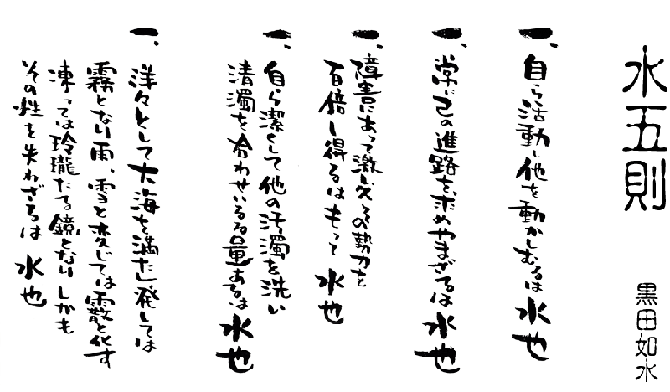 水五則
黒田如水
一、自ら活動し他を動かしむるは水也
一、常に己の進路を求めやまざるは水也
一、障害にあって激しくその勢力を
百倍し得るはもって水也
一、自ら潔くして他の汚濁を洗い
清濁を合わせいるる量あるは水也
一、洋々として大海を満たし発しては
霧となり雨、雪と変じては霰と化す
凍っては玲瓏たる鏡となりしかも
その性を失わざるは水也